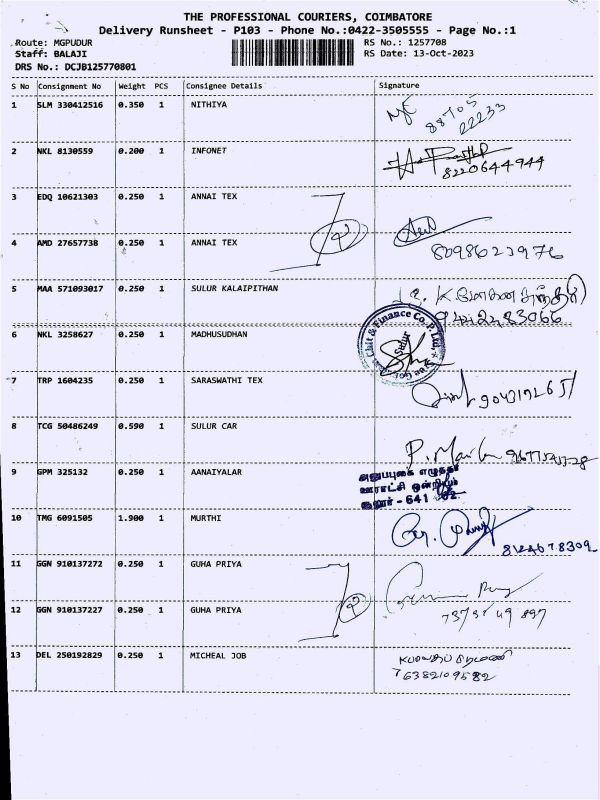 THE PROFESSIONAL COURIERS, COIMBATORE
Delivery Runsheet - P103 - Phone No.:0422-3505555 - Page No.:1
Route: MGPUDUR RS No.: 1257708
Staff: BALAJI RS Date: 13-Oct-2023
DRS No.: DCJB125770801
S No Consignment No Weight PCS Consignee Details Signature
1 SLM 330412516 0.350 1 NITHIYA
88705
22233
2 NKL 8130559 0.200 1 INFONET
8220644944
3 EDQ 10621303 0.250 1 ANNAI TEX
4 AMD 27657738 0.250 1 ANNAI TEX
8098623976
5 MAA 571093017 0.250 1 SULUR KALAIPITHAN
6 NKL 3258627 0.250 1 MADHUSUDHAN
Chit & Finance Co. P. Ltd.
7 TRP 1604235 0.250 1 SARASWATHI TEX
8 TCG 50486249 0.590 1 SULUR CAR
9 GPM 325132 0.250 1 AANAIYALAR
ஊராட்சி ஒன்றியம்
சூலூர் - 641
10 TMG 6091505 1.900 1 MURTHI
8124678309
11 GGN 910137272 0.250 1 GUHA PRIYA
12 GGN 910137227 0.250 1 GUHA PRIYA
13 DEL 250192829 0.250 1 MICHEAL JOB
76382109582